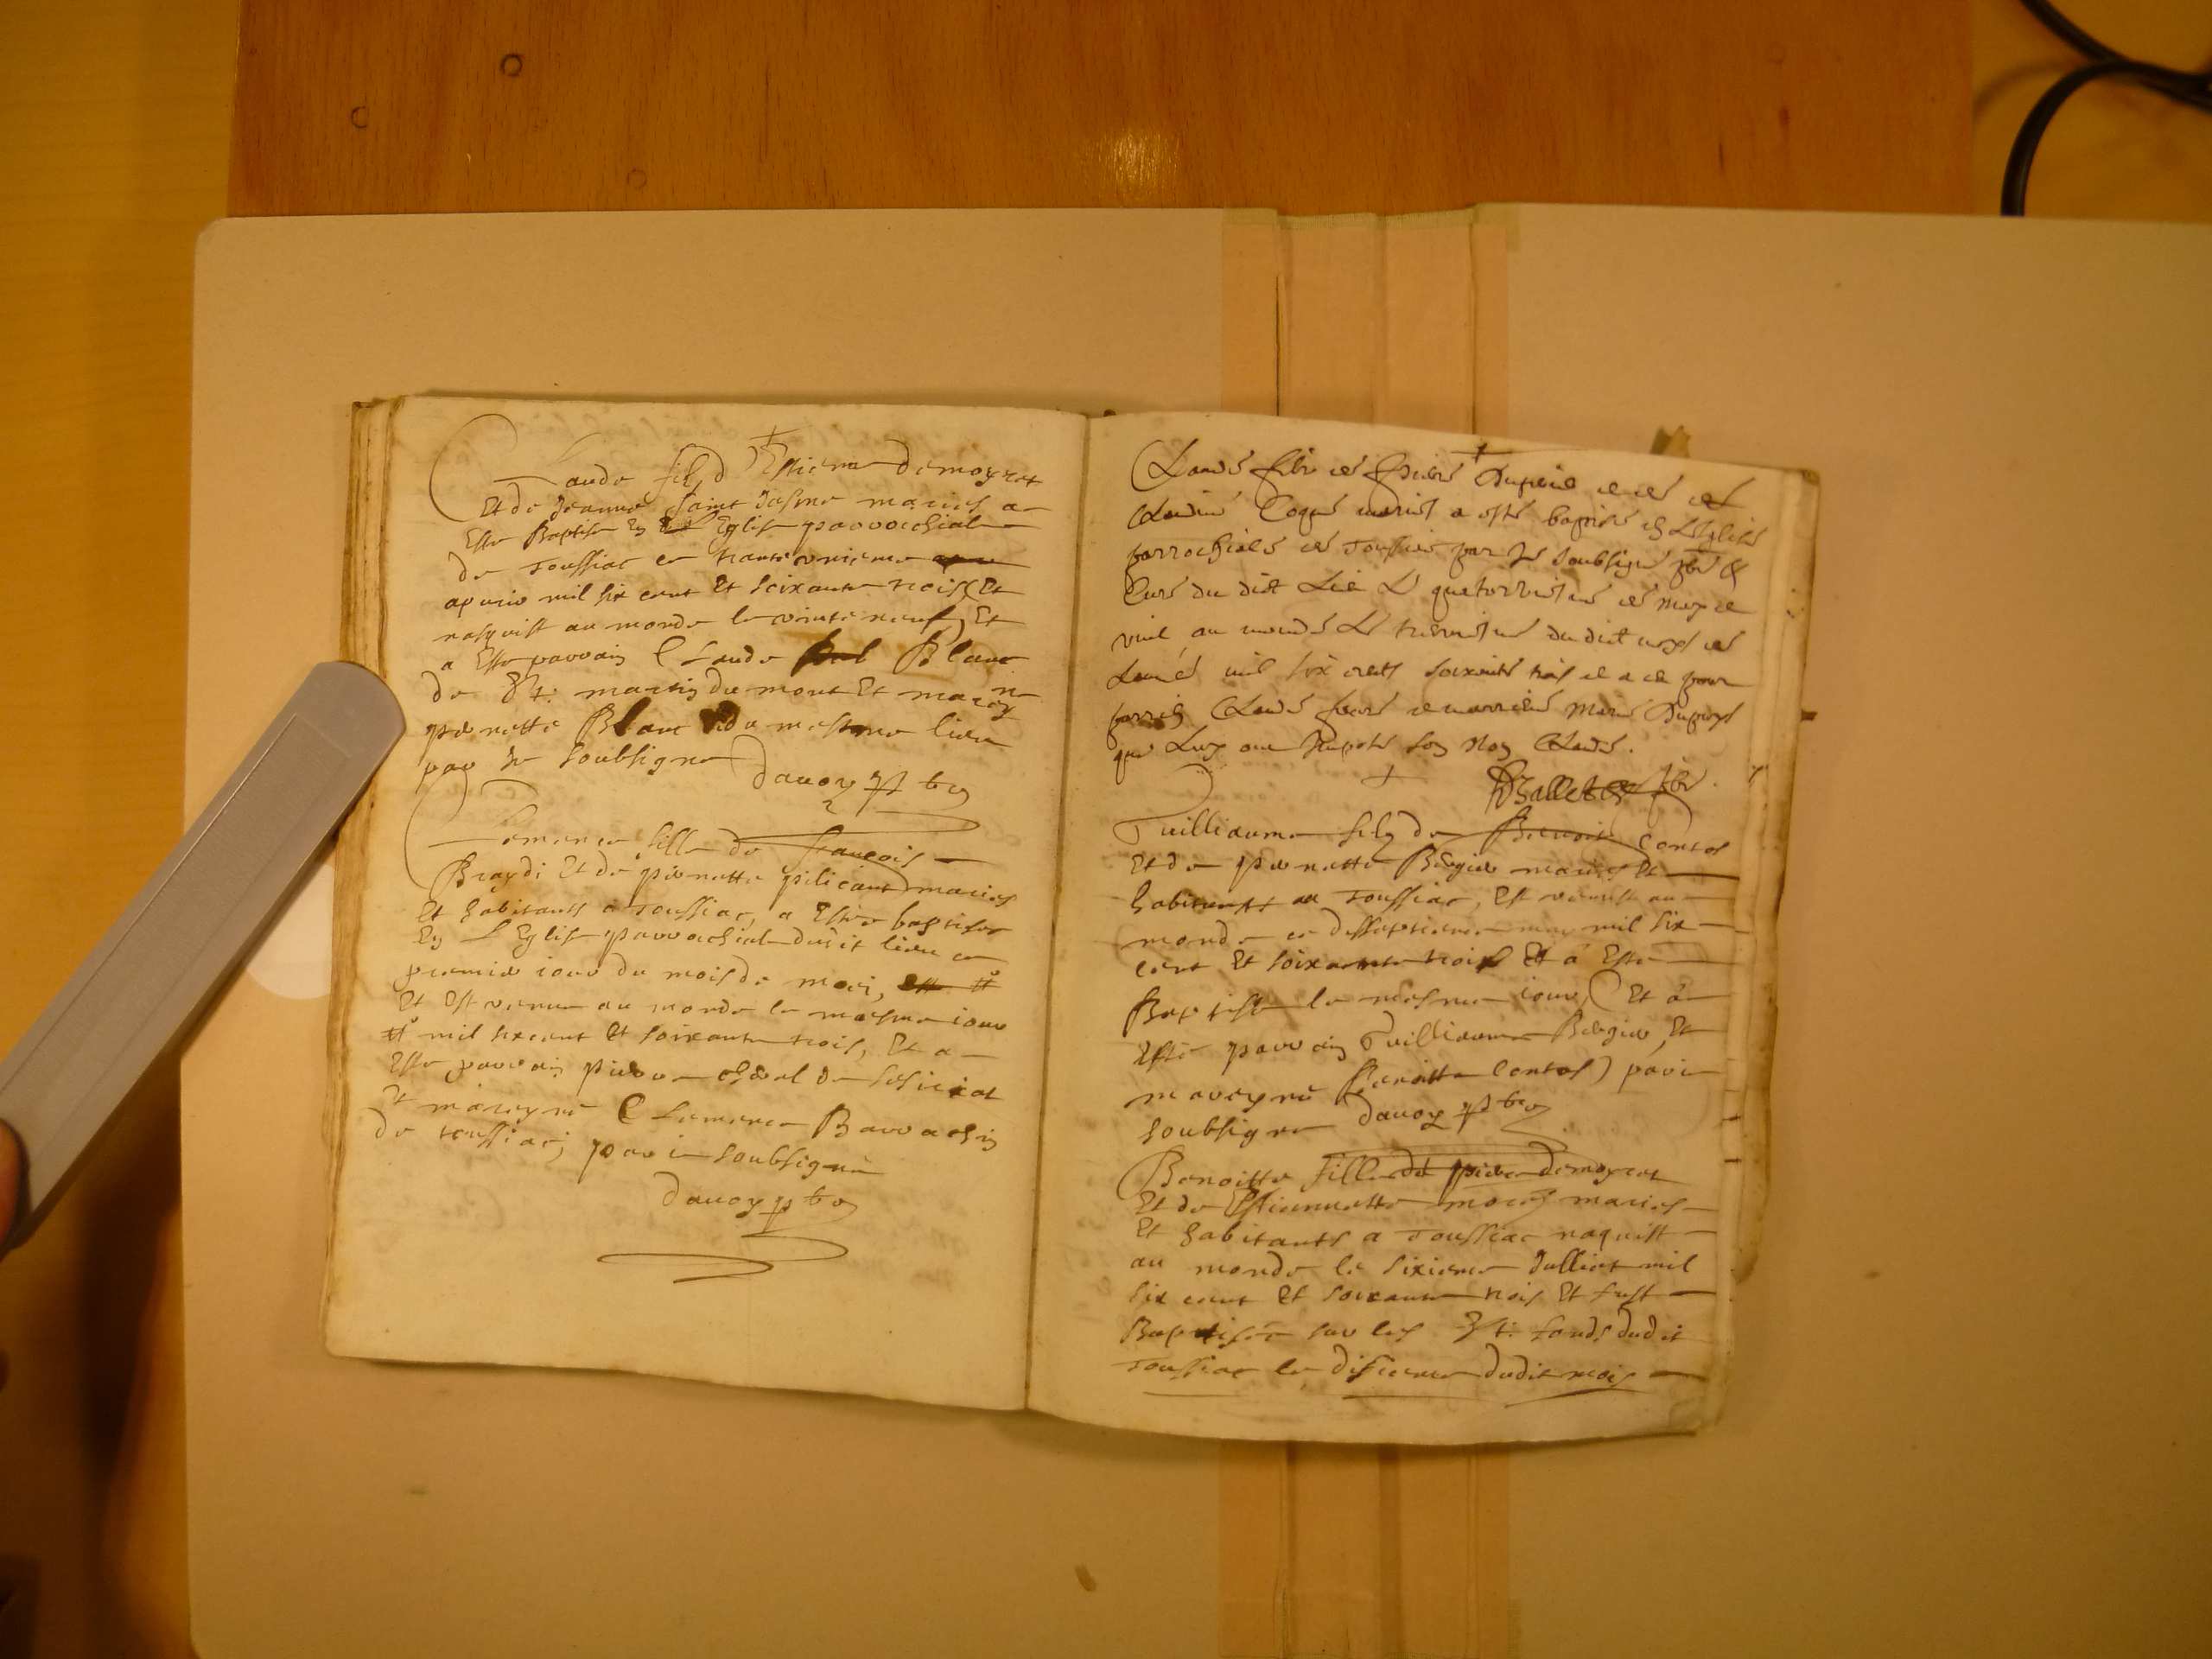 Claude fils d Estiene demoyret
Et de Jeanne Saint Jasme mariés a
Esté Baptisé En L Eglise parrochiale
de Toussiac ce trante unieme
apuril mil six cent Et soixante trois Et
nasquist au monde le vinte neuf, Et
a Esté parrain Claude Blanc
de St: martin du mont Et mareyne
pernette Blanc du mesme lieu
par Je soubsigné davox pbre
Clemence fille de francois
Braydi Et de pernette pilicant mariés
Et habitants a Toussiac, a Estée baptisée
En L Eglise parrochiale dudit lieu ce
premier iour du mois de mai,
Et Est venue au monde le mesme iour
mil six cent Et soixante trois, Et a
Esté parrain pierre de
Et mareyne Clemence Barrachin
de toussiac, par ie soubsigné
davox pbre
Claude filz de Dupuis et de
Claudine mariés a esté baptisé en L'eglise
parrochiale de Toussia par Je soubsigné pbre &
Curé du dict Lieu Le quatorziesme de may et
vint au monde Le treziesme du dict moys de
Lannée mil six cents soixante trois et a eu pour
parrin Claude et marriene Marie Dupuys
qui Luy ont Imposé son Nom Claude.
Ballet pbre
Guilliaume filz de Benoit Contos
Et de pernette Bergier mariés Et
habitants a Toussiac, Est venust au
monde ce dessettieme may mil six
cent Et soixante trois Et a Esté
Baptisé le mesme iour, Et a
Esté parrain Guilliaume Bergier, Et
mareyne Benoitte Contos) par ie
soubsigné davox pbre
Benoitte fille de pierre demoyret
Et de Estiennette morel mariés
Et habitants a Toussiac naquist
au monde le sixieme Julliet mil
six cent Et soixante trois Et fust
Baptisée sur les St: fonds dudit
Toussiac le disieme dudit mois